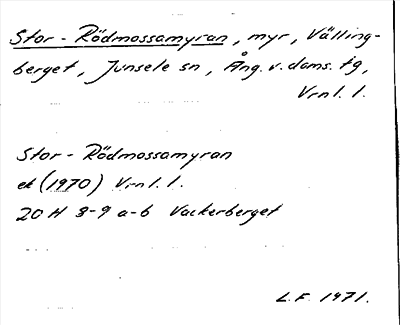 Stor-Rödmossamyran, myr, Välling-
berget, Junsele sn, Ång. v. doms. tg,
Vrnl. 1.
Stor-Rödmossamyran
ek (1970) Vrnl. 1.
20 H 8-9 a-b Vackerberget
L.F. 1971.